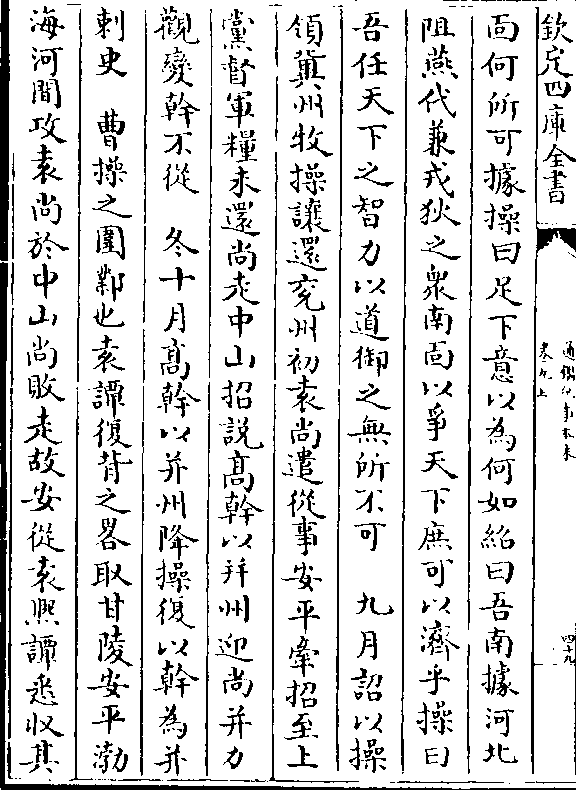 欽定四庫全書
通鑑紀事本末
卷九上
四十九
面何所可據操曰足下意以為何如紹曰吾南據河北
阻燕代兼戎狄之衆南面以爭天下庶可以濟乎操曰
吾任天下之智力以道御之無所不可　九月詔以操
領冀州牧操讓還兗州初袁尚遣從事安平牽招至上
黨督軍糧未還尚走中山招説髙幹以并州迎尚并力
觀變幹不從　冬十月髙幹以并州降操復以幹為并
刺史　曹操之圍鄴也袁譚復背之畧取甘陵安平渤
海河間攻袁尚於中山尚敗走故安從袁熙譚悉收其